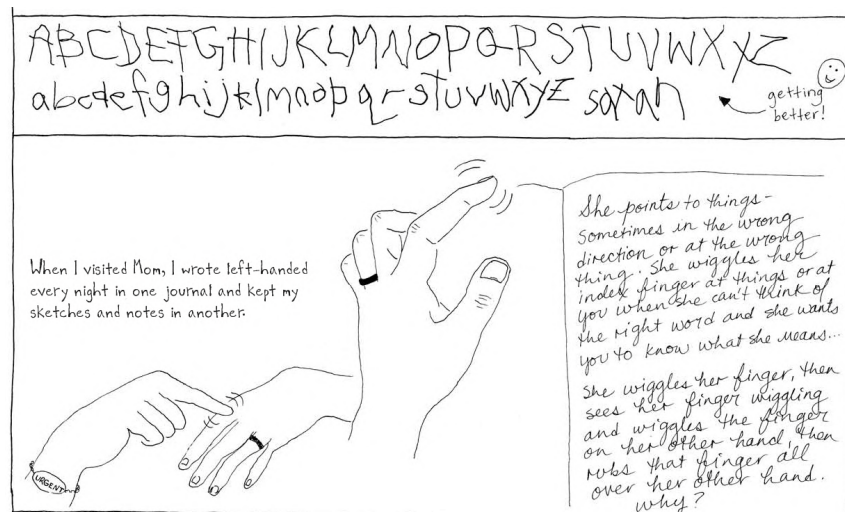 ABCDEFGHIJKLMNOPQRSTUVWXYZ
abcdefghijklmnopqrstuvwxyz sarah
getting
better!
When I visited Mom, I wrote left-handed
every night in one journal and kept my
sketches and notes in another.
URGENT
She points to things-
sometimes in the wrong
direction or at the wrong
thing. She wiggles her
index finger at things or at
you when she can't think of
the right word and she wants
you to know what she means...
She wiggles her finger, then
sees her finger wiggling
and wiggles the finger
on her other hand, then
rubs that finger all
over her other hand.
Why?